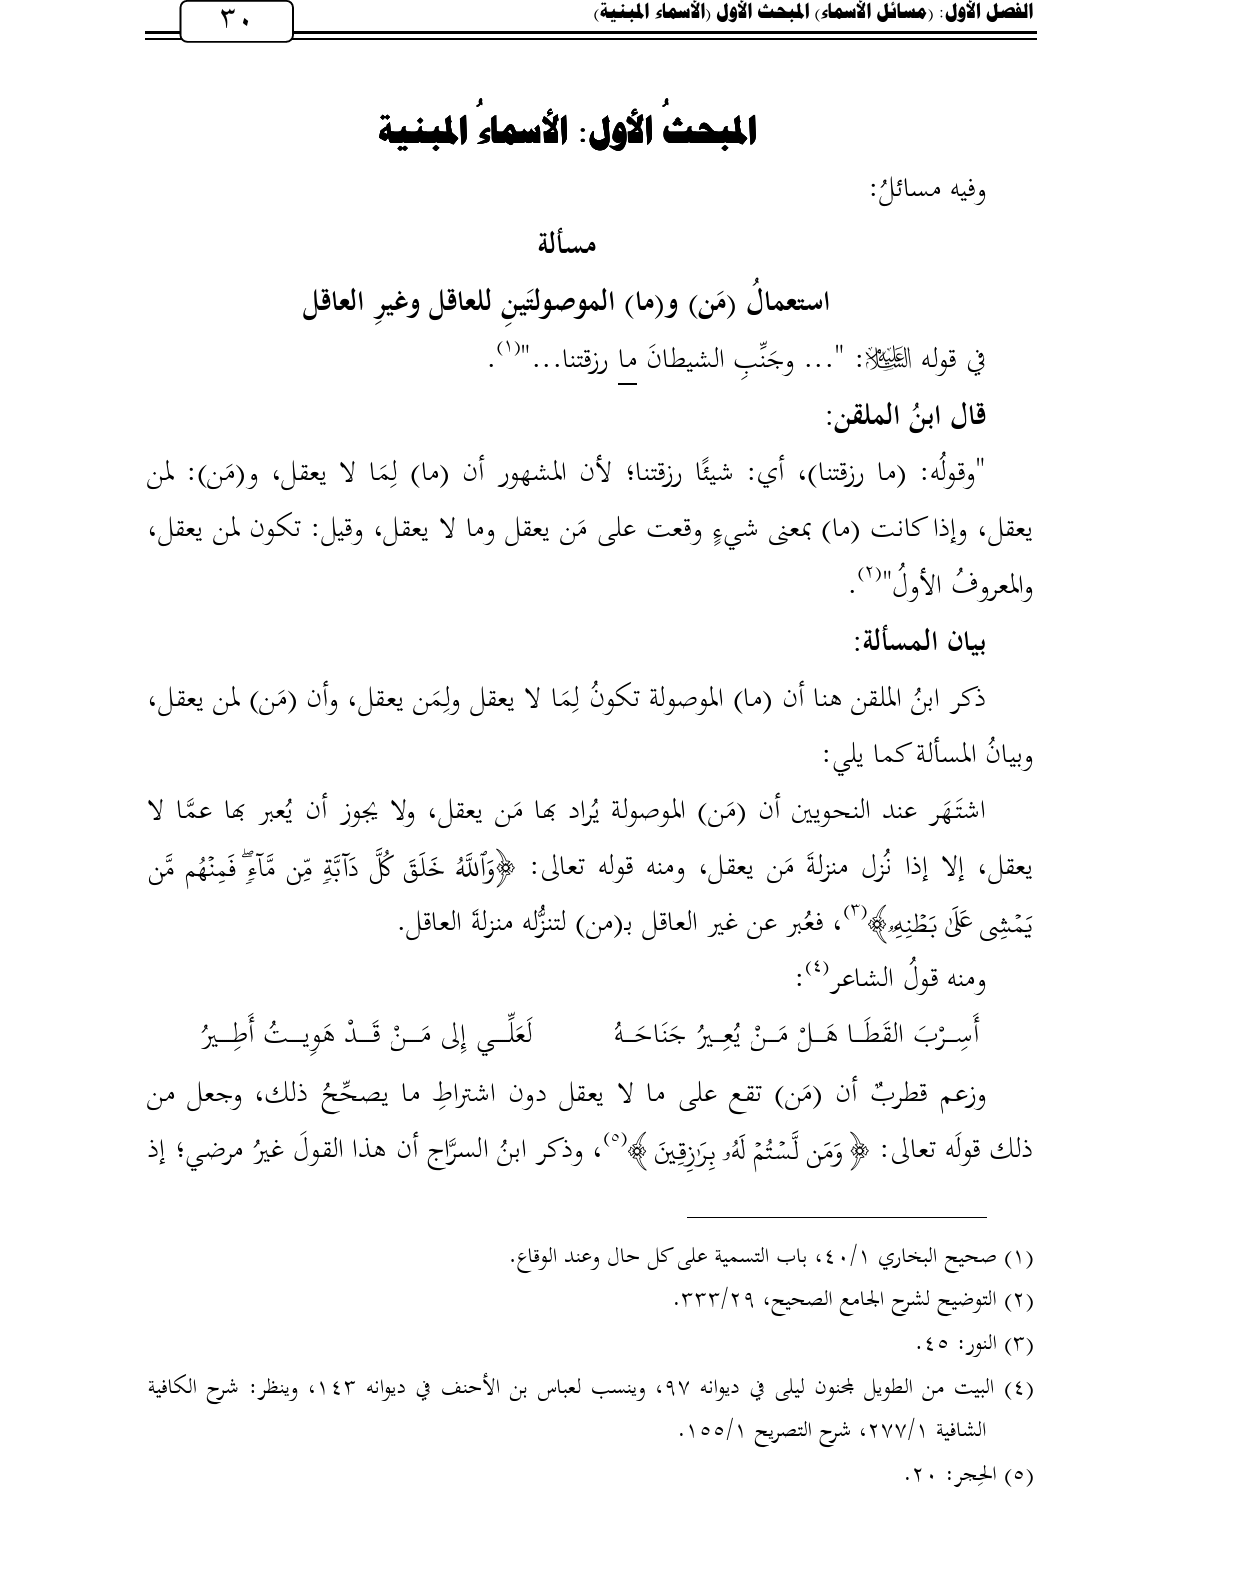 الفصل الأول: (مسائل الأسماء) المبحث الأول (الأسماء المبنية)
٣٠
المبحثُ الأول: الأسماءُ المبنية
وفيه مسائلُ:
مسألة
استعمالُ (مَن) و(ما) الموصولتَينِ للعاقل وغيرِ العاقل
في قوله عليه السلام: "... وجَنِّبِ الشيطانَ ما رزقتنا..."(١).
قال ابنُ الملقن:
"وقولُه: (ما رزقتنا)، أي: شيئًا رزقتنا؛ لأن المشهور أن (ما) لِمَا لا يعقل، و(مَن): لمن
يعقل، وإذا كانت (ما) بمعنى شيءٍ وقعت على مَن يعقل وما لا يعقل، وقيل: تكون لمن يعقل،
والمعروفُ الأولُ"(٢).
بيان المسألة:
ذكر ابنُ الملقن هنا أن (ما) الموصولة تكونُ لِمَا لا يعقل ولِمَن يعقل، وأن (مَن) لمن يعقل،
وبيانُ المسألة كما يلي:
اشتَهَر عند النحويين أن (مَن) الموصولة يُراد بها مَن يعقل، ولا يجوز أن يُعبر بها عمَّا لا
يعقل، إلا إذا نُزل منزلةَ مَن يعقل، ومنه قوله تعالى: ﴿وَٱللَّهُ خَلَقَ كُلَّ دَآبَّةٖ مِّن مَّآءٖۖ فَمِنۡهُم مَّن
يَمۡشِي عَلَىٰ بَطۡنِهِۦ﴾(٣)، فعُبر عن غير العاقل بـ(من) لتنزُّله منزلةَ العاقل.
ومنه قولُ الشاعر(٤):
أَسِـرْبَ القَطَـا هَـلْ مَـنْ يُعِـيرُ جَنَاحَـهُ لَعَلِّـي إِلى مَـنْ قَـدْ هَوِيـتُ أَطِـيرُ
وزعم قطربٌ أن (مَن) تقع على ما لا يعقل دون اشتراطِ ما يصحِّحُ ذلك، وجعل من
ذلك قولَه تعالى: ﴿وَمَن لَّسۡتُمۡ لَهُۥ بِرَٰزِقِينَ﴾(٥)، وذكر ابنُ السرَّاج أن هذا القولَ غيرُ مرضي؛ إذ
(١) صحيح البخاري ٤٠/١، باب التسمية على كل حال وعند الوقاع.
(٢) التوضيح لشرح الجامع الصحيح، ٣٣٣/٢٩.
(٣) النور: ٤٥.
(٤) البيت من الطويل لمجنون ليلى في ديوانه ٩٧، وينسب لعباس بن الأحنف في ديوانه ١٤٣، وينظر: شرح الكافية
الشافية ٢٧٧/١، شرح التصريح ١٥٥/١.
(٥) الحِجر: ٢٠.